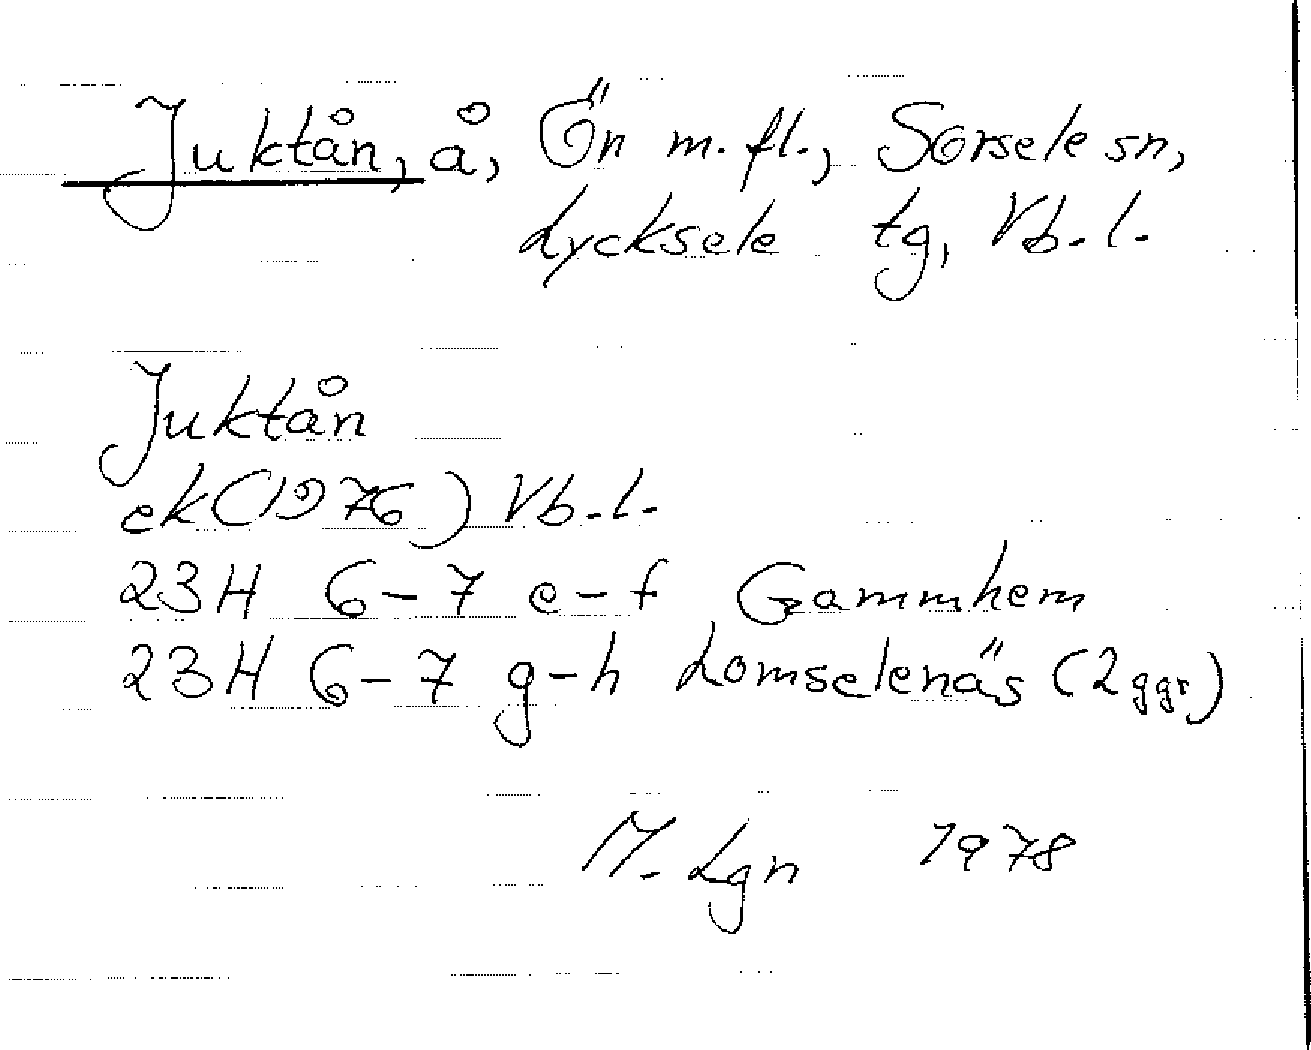 Juktån, å, Ön m.fl., Sorsele sn,
Lycksele tg, Vb.l.
Juktån
ek(1976) Vb.l.
23H 6-7 e-f Gammhem
23H 6-7 g-h Lomselenäs (2ggr)
M. Lgn 1978